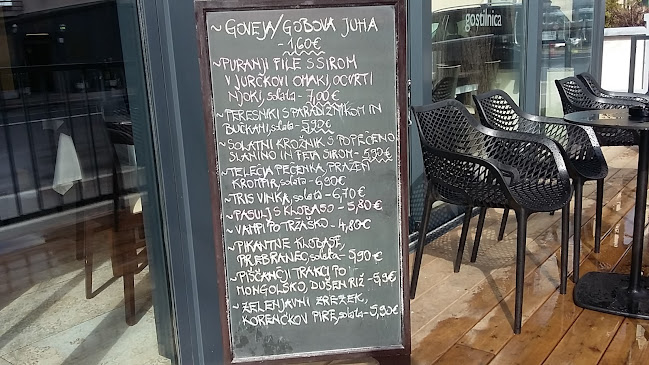 gostilnica
~ GOVEJA/GOBOVA JUHA
- 1,60€
~ PURANJI FILE S SIROM
V JURČKOVI OMAKI, OCVRTI
NJOKI, solata - 7,00€
~ PERESNIKI S PARADIŽNIKOM IN
BUČKAMI, solata - 5,90€
~ SOLATNI KROŽNIK S POPEČENO
SLANINO IN FETA SIROM - 5,90€
~ TELEČJA PEČENKA, PRAŽEN
KROMPIR, solata - 6,90€
~ TRIS VINKA, solata - 6,70€
~ PASULJ S KLOBASO - 5,80€
~ VAMPI PO TRŽAŠKO - 4,80€
~ PIKANTNE KLOBASE,
PREBRANEC, solata - 5,90€
~ PIŠČANČJI TRAKCI PO
MONGOLSKO, DUŠEN RIŽ - 5,9€
~ ZELENJAVNI ZREZEK,
KORENČKOV PIRE, solata - 5,90€